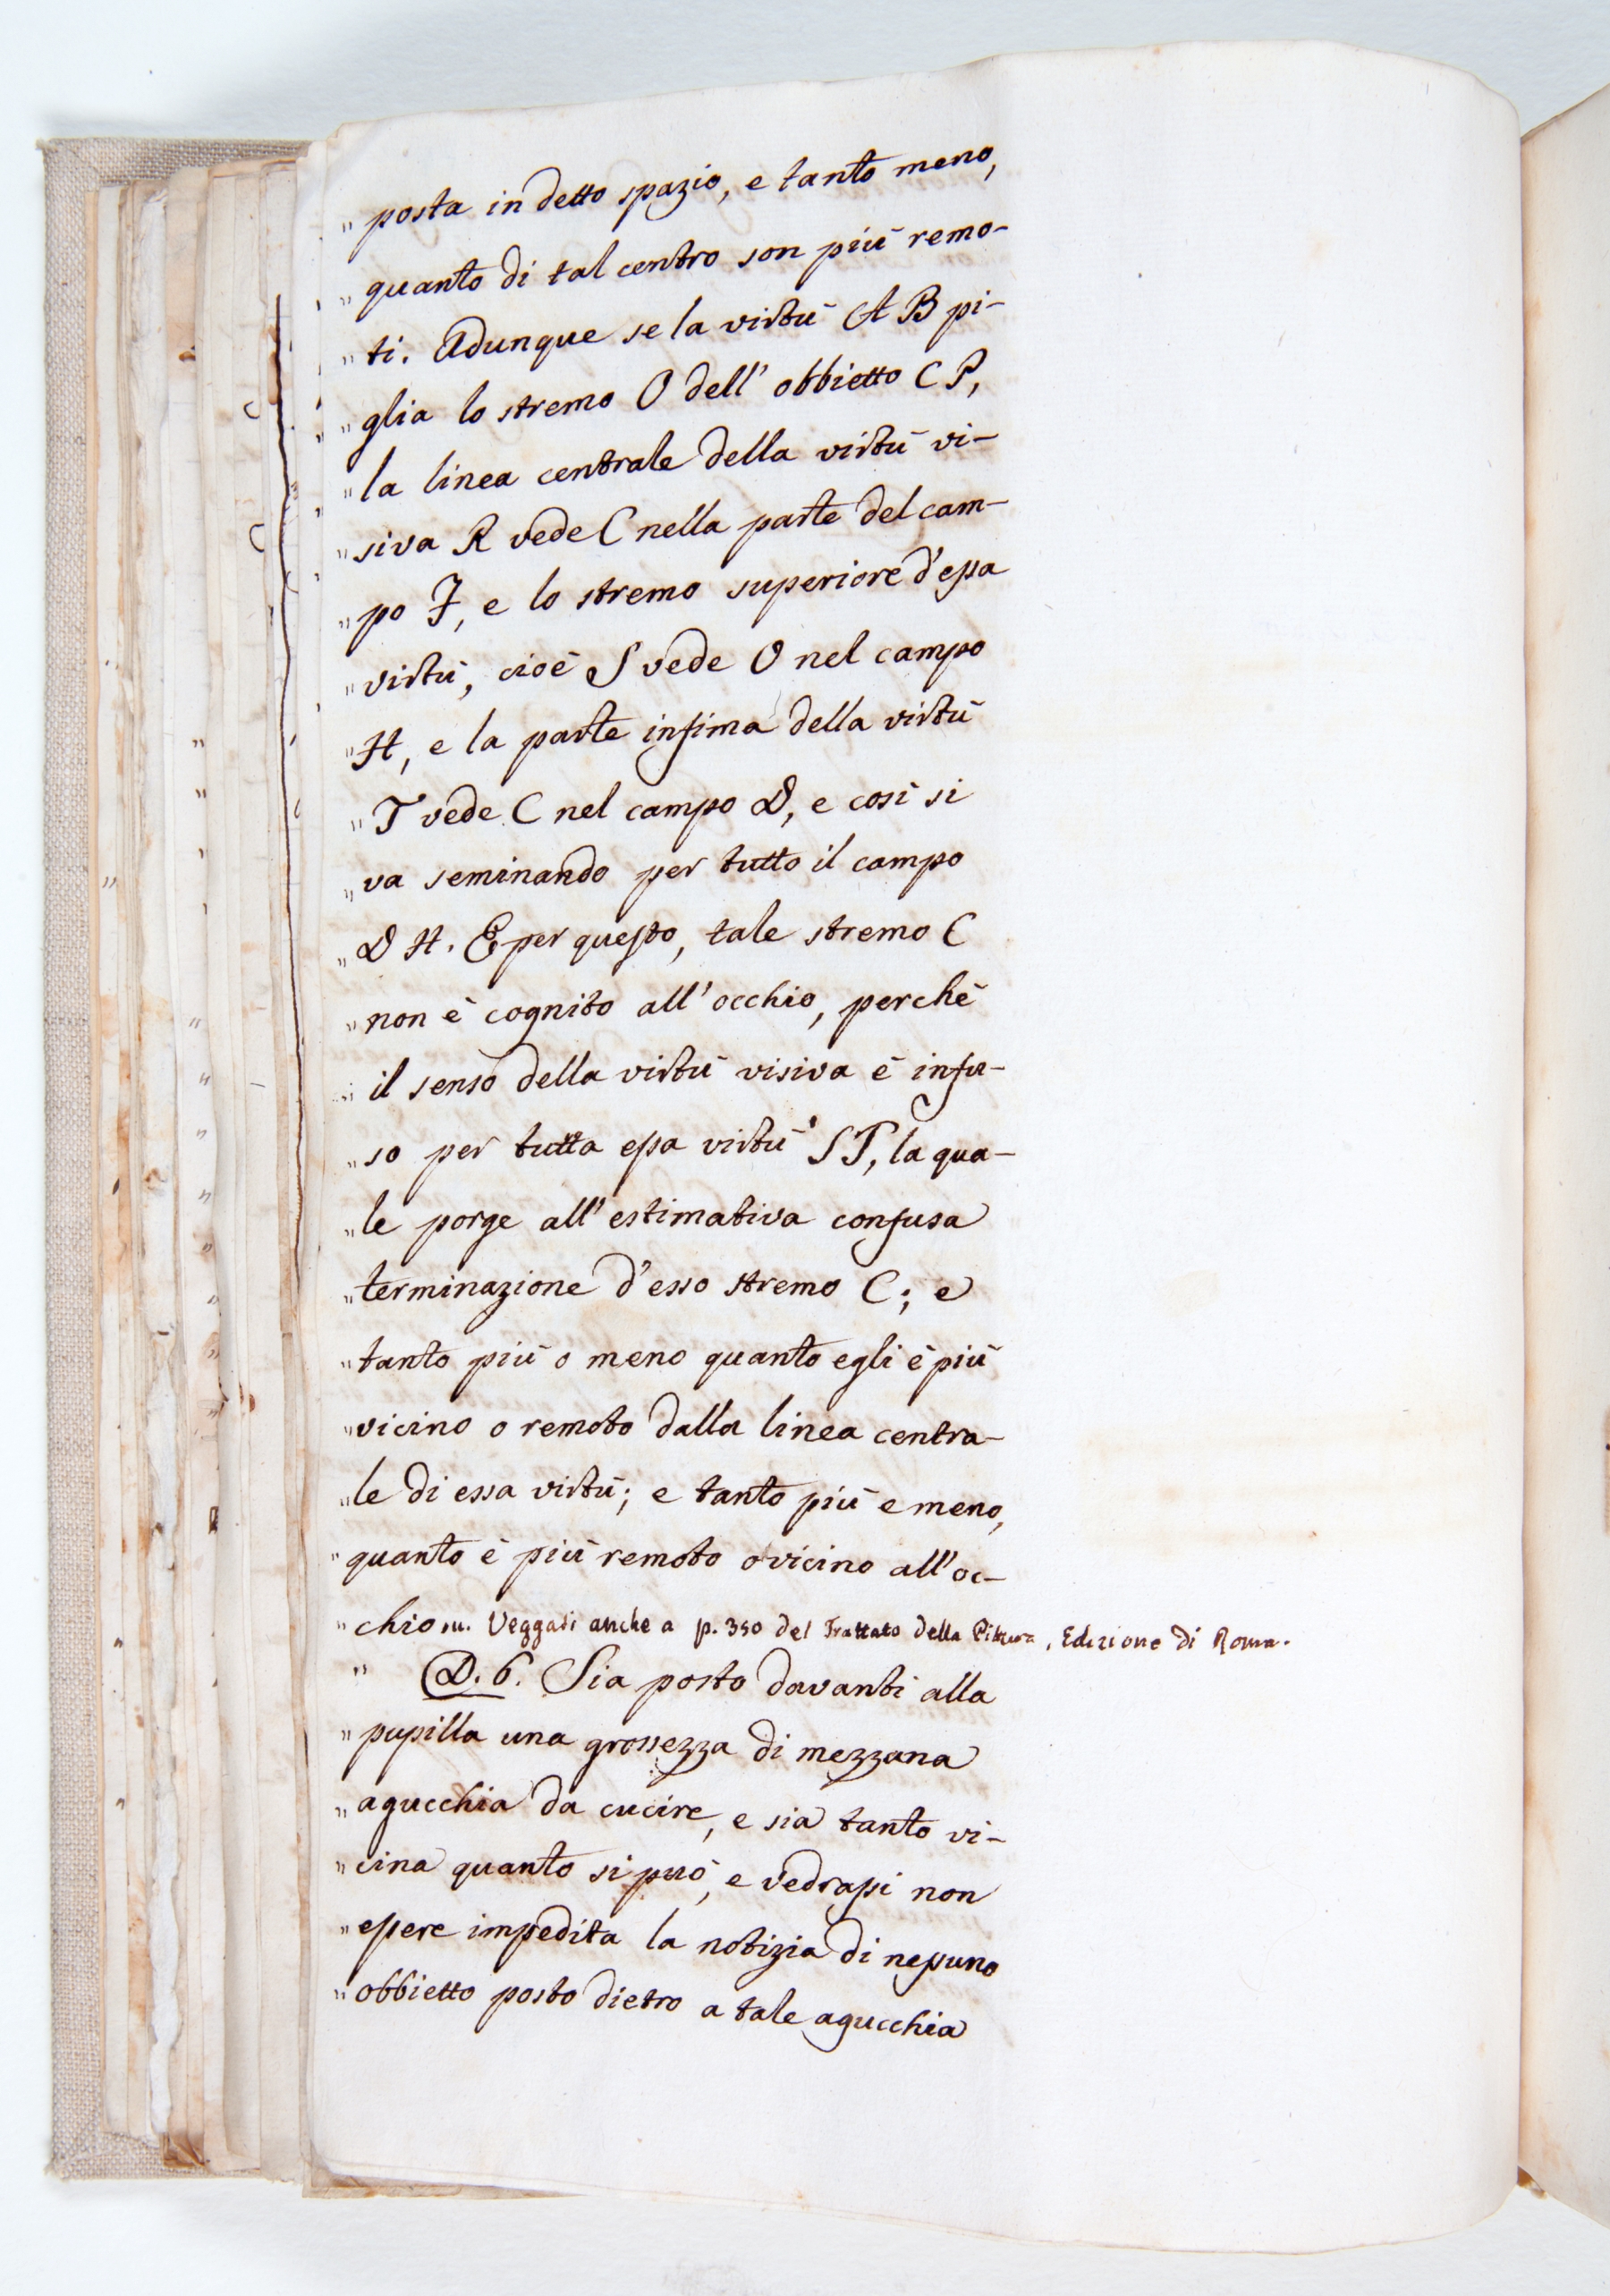 " posta in detto spazio, e tanto meno,
" quanto di tal centro son più remo-
" ti. Adunque se la virtù A B pi-
" glia lo stremo O dell' obbietto C P,
" la linea centrale della virtù vi-
" siva R vede C nella parte del cam-
" po F, e lo stremo superiore d'essa
" virtù, cioè S vede O nel campo
" H, e la parte infima della virtù
" T vede C nel campo D, e così si
" va seminando per tutto il campo
" D H. E per questo, tale stremo C
" non è cognito all' occhio, perchè
" il senso della virtù visiva è infu-
" so per tutta essa virtù S T, la qua-
" le porge all' estimativa confusa
" terminazione d'esso stremo C; e
" tanto più o meno quanto egli è più
" vicino o remoto dalla linea centra-
" le di essa virtù; e tanto più e meno,
" quanto è più remoto o vicino all' oc-
" chio ". Veggasi anche a p. 350 del Trattato della Pittura, Edizione di Roma.
" D. 6. Sia posto davanti alla
" pupilla una grossezza di mezzana
" agucchia da cucire, e sia tanto vi-
" cina quanto si può, e vedrassi non
" essere impedita la notizia di nessuno
" obbietto posto dietro a tale agucchia